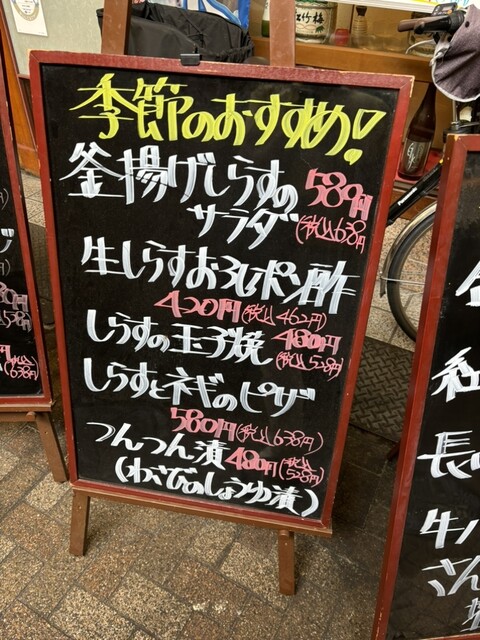 季節のおすすめ!
釜揚げしらすの
サラダ
580円
(税込638円
生しらすおろしポン酢
420円(税込462円)
しらすの玉子焼
480円
(税込528円)
しらすとネギのピザ
580円(税込638円)
つんつん漬
480円(税込
528円)
(わさびのしょうゆ漬)
長
牛
さん